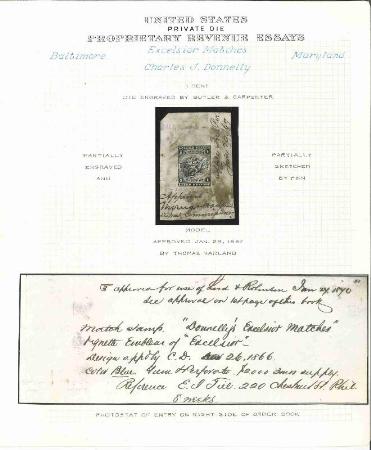 UNITED STATES
PRIVATE DIE
PROPRIETARY REVENUE ESSAYS
Baltimore Excelsior Matches Maryland
Charles J. Donnelly
1 CENT
DIE ENGRAVED BY BUTLER & CARPENTER
PARTIALLY
ENGRAVED
AND
PARTIALLY
SKETCHED
BY PEN
Approved
MODEL
APPROVED JAN. 29, 1867
BY THOMAS HARLAND
approved for use of & Robinson Jan 24 1870
see approval on 1st page of this book
Match Stamp. "Donnelly's Excelsior Matches"
Vignette Emblem of "Excelsior"
Design app'd by C.D. 26. 1866.
Color Blue Gum & Perforate supply.
Reference E. I. 220 Chestnut St. Phil
5 weeks
PHOTOSTAT OF ENTRY ON RIGHT SIDE OF ORDER BOOK